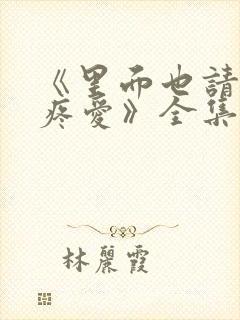 《里面也請
疼愛》全集
林麗霞